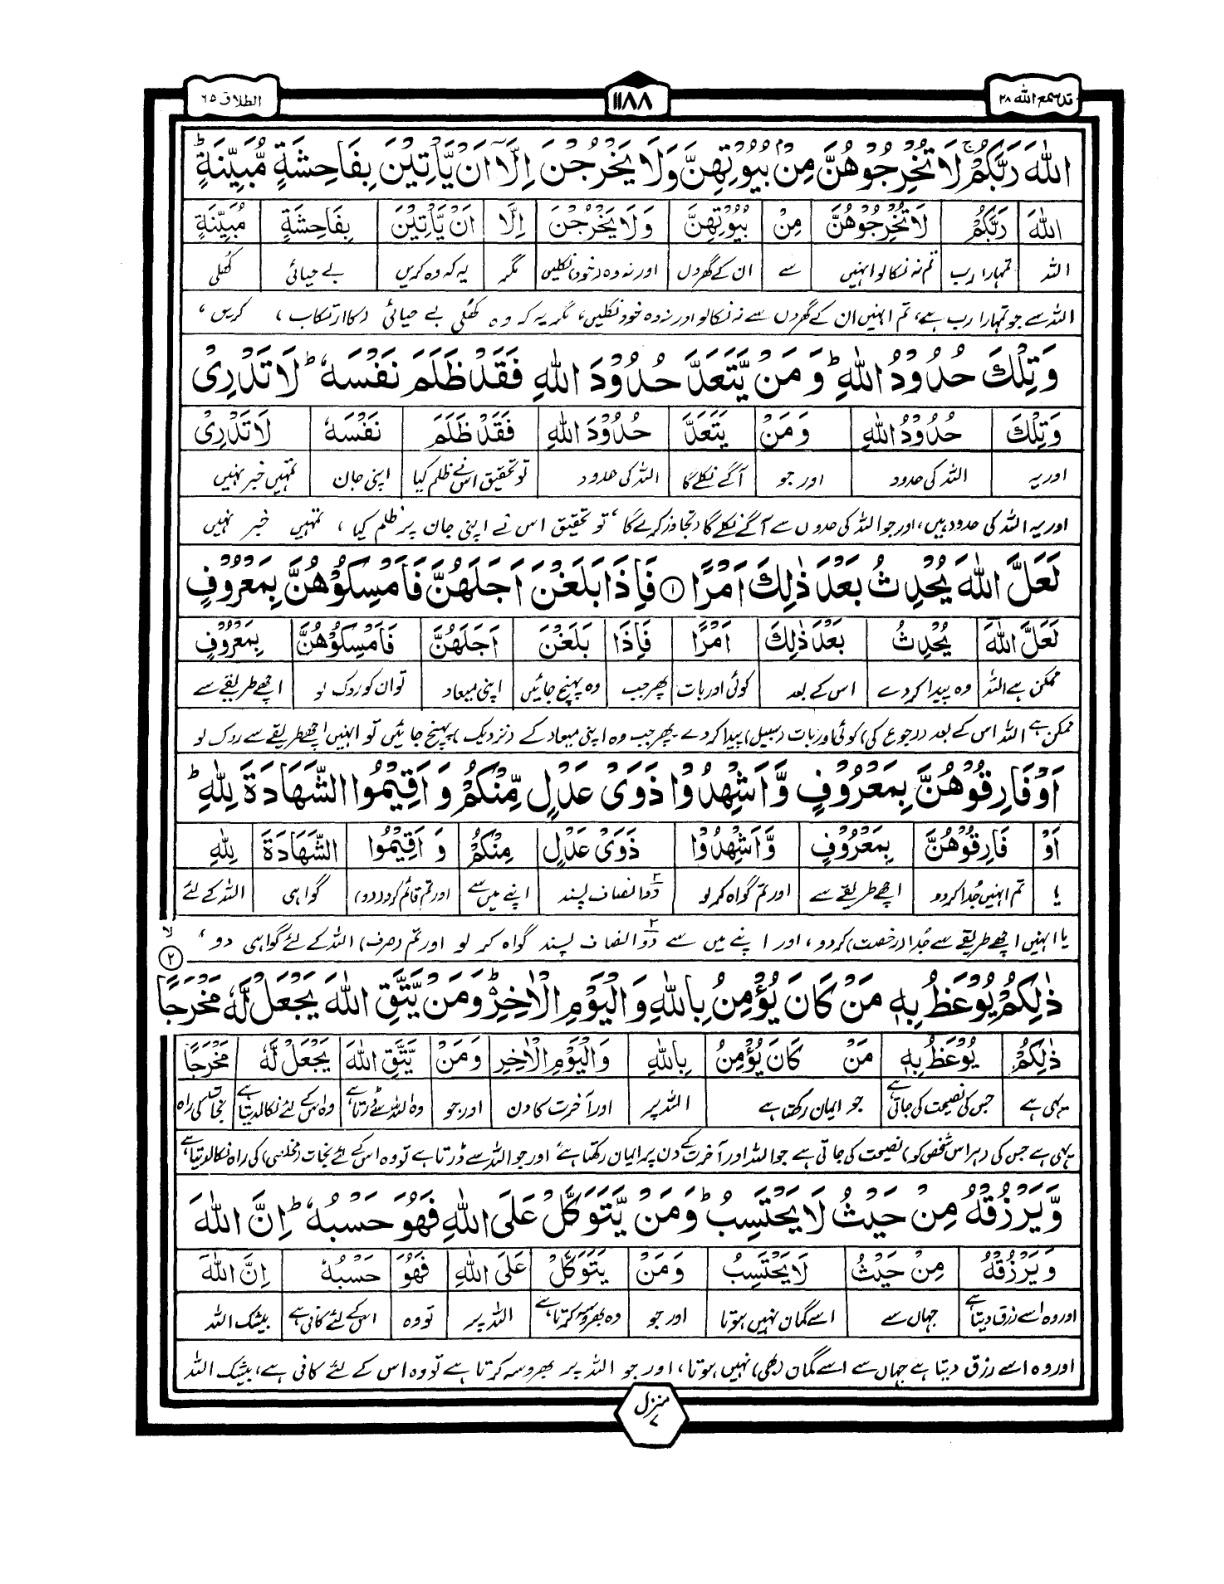 قد سمع الله ٢٨
١١٨٨
الطلاق ٦٥
اللهَ رَبَّكُمْ ۚ لَا تُخْرِجُوْهُنَّ مِنْۢ بُيُوْتِهِنَّ وَلَا يَخْرُجْنَ اِلَّآ اَنْ يَّاْتِيْنَ بِفَاحِشَةٍ مُّبَيِّنَةٍ ؕ
اللهَ رَبَّكُمْ لَا تُخْرِجُوْهُنَّ مِنْ بُيُوْتِهِنَّ وَلَا يَخْرُجْنَ اِلَّا اَنْ يَّاْتِيْنَ بِفَاحِشَةٍ مُبَيِّنَةٍ
اللہ تمہارا رب تم نہ نکالو انہیں سے ان کے گھروں اور نہ وہ (خود) نکلیں مگر یہ کہ وہ کریں بے حیائی کھُلی
اللہ سے جو تمہارا رب ہے، تم انہیں ان کے گھروں سے نہ نکالو اور نہ وہ خود نکلیں، مگر یہ کہ وہ کھُلی بے حیائی (کا ارتکاب) کریں،
وَتِلْكَ حُدُوْدُ اللهِ ؕ وَمَنْ يَّتَعَدَّ حُدُوْدَ اللهِ فَقَدْ ظَلَمَ نَفْسَهٗ ؕ لَا تَدْرِىْ
وَتِلْكَ حُدُوْدُ اللهِ وَمَنْ يَتَعَدَّ حُدُوْدَ اللهِ فَقَدْ ظَلَمَ نَفْسَهٗ لَا تَدْرِىْ
اور یہ اللہ کی حدود اور جو آگے نکلے گا اللہ کی حدود تو تحقیق اس نے ظلم کیا اپنی جان تمہیں خبر نہیں
اور یہ اللہ کی حدود ہیں، اور جو اللہ کی حدوں سے آگے نکلے گا (تجاوز کرے گا) تو تحقیق اس نے اپنی جان پر ظلم کیا، تمہیں خبر نہیں
لَعَلَّ اللهَ يُحْدِثُ بَعْدَ ذٰلِكَ اَمْرًا ۝١ فَاِذَا بَلَغْنَ اَجَلَهُنَّ فَاَمْسِكُوْهُنَّ بِمَعْرُوْفٍ
لَعَلَّ اللهَ يُحْدِثُ بَعْدَ ذٰلِكَ اَمْرًا فَاِذَا بَلَغْنَ اَجَلَهُنَّ فَاَمْسِكُوْهُنَّ بِمَعْرُوْفٍ
ممکن ہے اللہ وہ پیدا کر دے اس کے بعد کوئی اور بات پھر جب وہ پہنچ جائیں اپنی میعاد تو ان کو روک لو اچھے طریقے سے
ممکن ہے اللہ اس کے بعد (رجوع کی) کوئی اور بات (سبیل) پیدا کر دے پھر جب وہ اپنی میعاد کے (نزدیک) پہنچ جائیں تو انہیں اچھے طریقے سے روک لو
اَوْ فَارِقُوْهُنَّ بِمَعْرُوْفٍ وَّاَشْهِدُوْا ذَوَىْ عَدْلٍ مِّنْكُمْ وَاَقِيْمُوا الشَّهَادَةَ لِلّٰهِ ؕ
اَوْ فَارِقُوْهُنَّ بِمَعْرُوْفٍ وَّاَشْهِدُوْا ذَوَىْ عَدْلٍ مِنْكُمْ وَاَقِيْمُوا الشَّهَادَةَ لِلّٰهِ
یا تم انہیں جُدا کر دو اچھے طریقے سے اور تم گواہ کر لو دو ۲ انصاف پسند اپنے میں سے اور تم قائم کرو (دو) گواہی اللہ کے لئے
یا انہیں اچھے طریقے سے جُدا (رخصت) کر دو، اور اپنے میں سے دو ۲ انصاف پسند گواہ کر لو اور تم (صرف) اللہ کے لئے گواہی دو،
ذٰلِكُمْ يُوْعَظُ بِهٖ مَنْ كَانَ يُؤْمِنُ بِاللهِ وَالْيَوْمِ الْاٰخِرِ ؕ وَمَنْ يَّتَّقِ اللهَ يَجْعَلْ لَّهٗ مَخْرَجًا ۝٢ۙ
ذٰلِكُمْ يُوْعَظُ بِهٖ مَنْ كَانَ يُؤْمِنُ بِاللهِ وَالْيَوْمِ الْاٰخِرِ وَمَنْ يَتَّقِ اللهَ يَجْعَلْ لَّهٗ مَخْرَجًا
یہی ہے جس کی نصیحت کی جاتی ہے جو ایمان رکھتا ہے اللہ پر اور آخرت کا دن اور جو وہ اللہ سے ڈرتا ہے وہ اس کے لئے نکالدیتا ہے نجات کی راہ
یہی ہے جس کی (ہر اس شخص کو) نصیحت کی جاتی ہے جو اللہ اور آخرت کے دن پر ایمان رکھتا ہے اور جو اللہ سے ڈرتا ہے تو وہ اس کے لئے نجات (مخلصی) کی راہ نکالدیتا ہے
وَّيَرْزُقْهُ مِنْ حَيْثُ لَا يَحْتَسِبُ ؕ وَمَنْ يَّتَوَكَّلْ عَلَى اللهِ فَهُوَ حَسْبُهٗ ؕ اِنَّ اللهَ
وَيَرْزُقْهُ مِنْ حَيْثُ لَا يَحْتَسِبُ وَمَنْ يَتَوَكَّلْ عَلَى اللهِ فَهُوَ حَسْبُهٗ اِنَّ اللهَ
اور وہ اسے رزق دیتا ہے جہاں سے اسے گمان نہیں ہوتا اور جو وہ بھروسہ کرتا ہے اللہ پر تو وہ اس کے لئے کافی ہے بیشک اللہ
اور وہ اسے رزق دیتا ہے جہاں سے اسے گمان (بھی) نہیں ہوتا، اور جو اللہ پر بھروسہ کرتا ہے تو وہ اس کے لئے کافی ہے، بیشک اللہ
منزل ۷